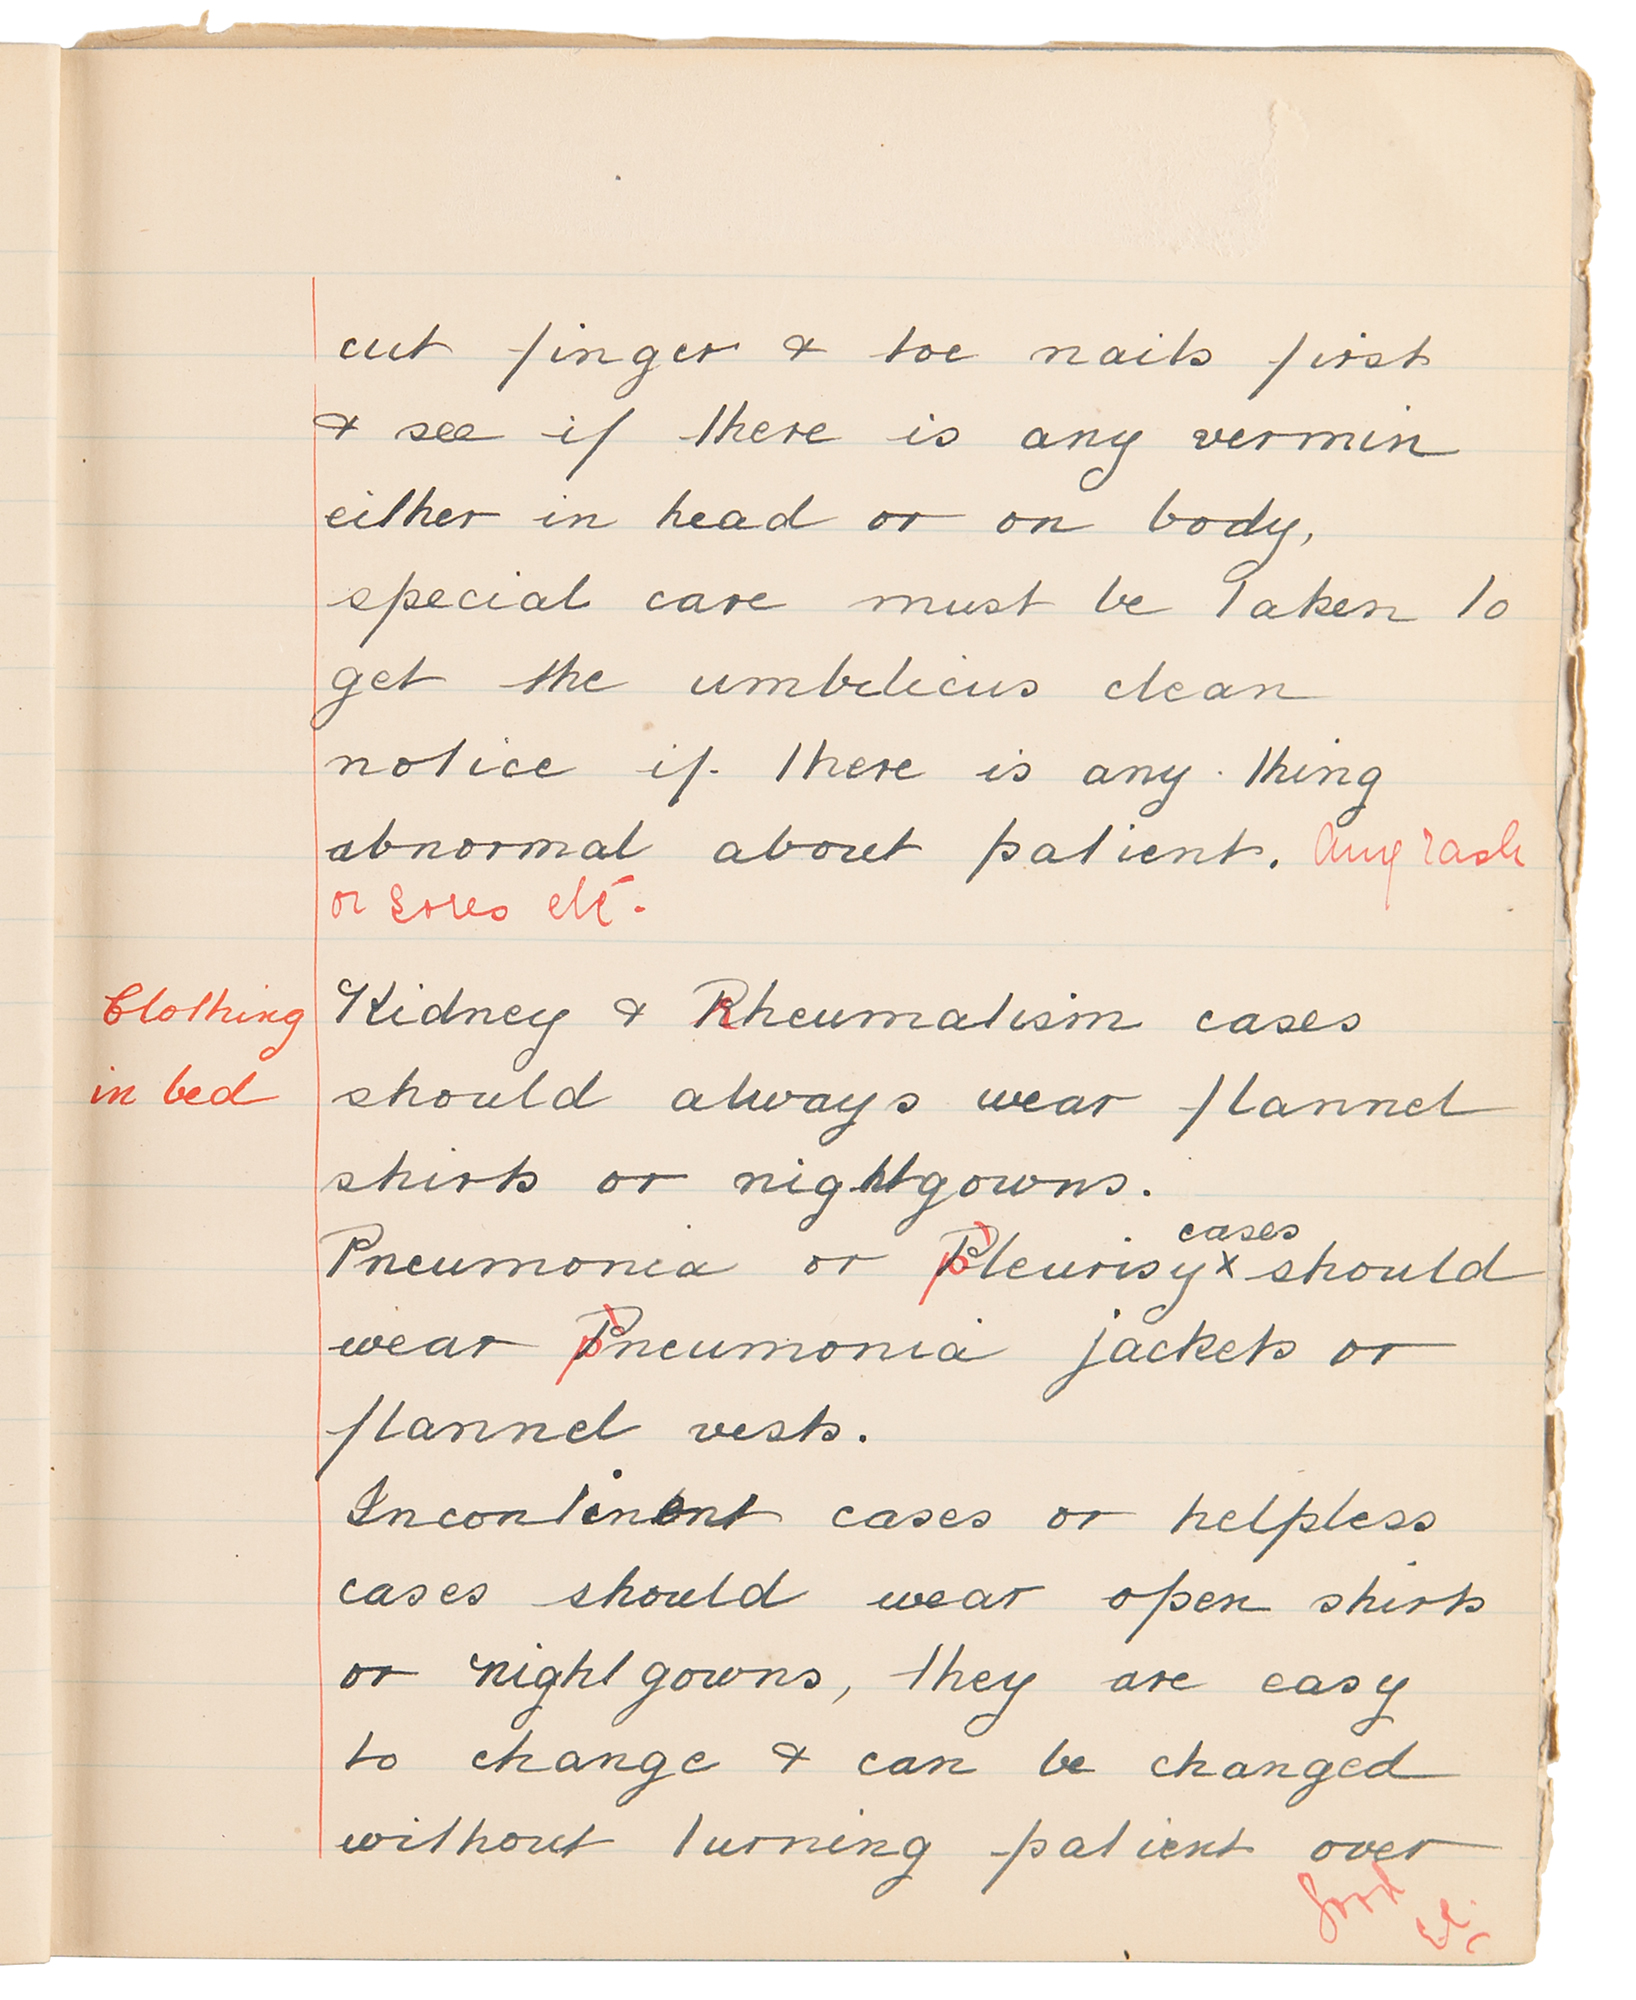 cut finger & toe nails first
& see if there is any vermin
either in head or on body,
special care must be taken to
get the umbilicus clean
notice if there is any thing
abnormal about patient. Any rash
or sores etc.
Clothing
in bed
Kidney & Rheumatism cases
should always wear flannel
shirts or nightgowns.
cases
Pneumonia or pleurisy x should
wear pneumonia jackets or
flannel vests.
Incontinent cases or helpless
cases should wear open shirts
or night gowns, they are easy
to change & can be changed
without turning patient over
Good